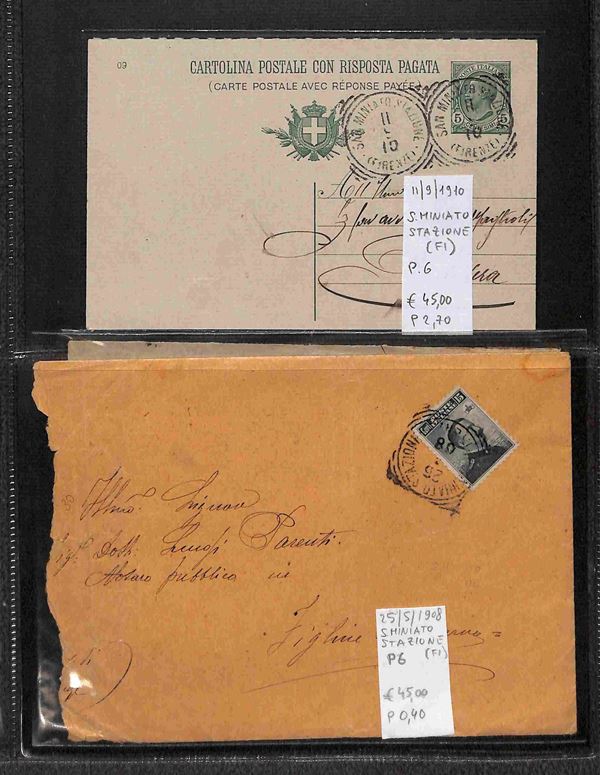 09
CARTOLINA POSTALE CON RISPOSTA PAGATA
(CARTE POSTALE AVEC RÉPONSE PAYÉE)
POSTE ITALIANE
5 5
SAN MINIATO STAZIONE
11
10
(FIRENZE)
SAN MINIATO
11
10
(FIRENZE)
All'
11/9/1910
S. MINIATO
STAZIONE
(FI)
P.6
€ 45,00
P 2,70
15
MINIATO STAZIONE
25
08
Illmo. Signor
Dott. Luigi Parenti.
Notaro pubblico in
Figline
25/5/1908
S MINIATO
STAZIONE
P6 (FI)
€ 45,00
P 0,40